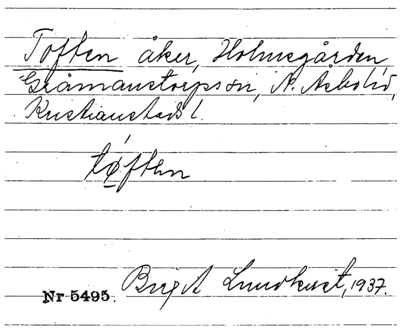 Toften åker, Holmsgården,
Gråmanstorps sn, N. Åsbo hd,
Kristianstads l.
tǿften
Nr 5495. Birgit Lundkvist, 1937.